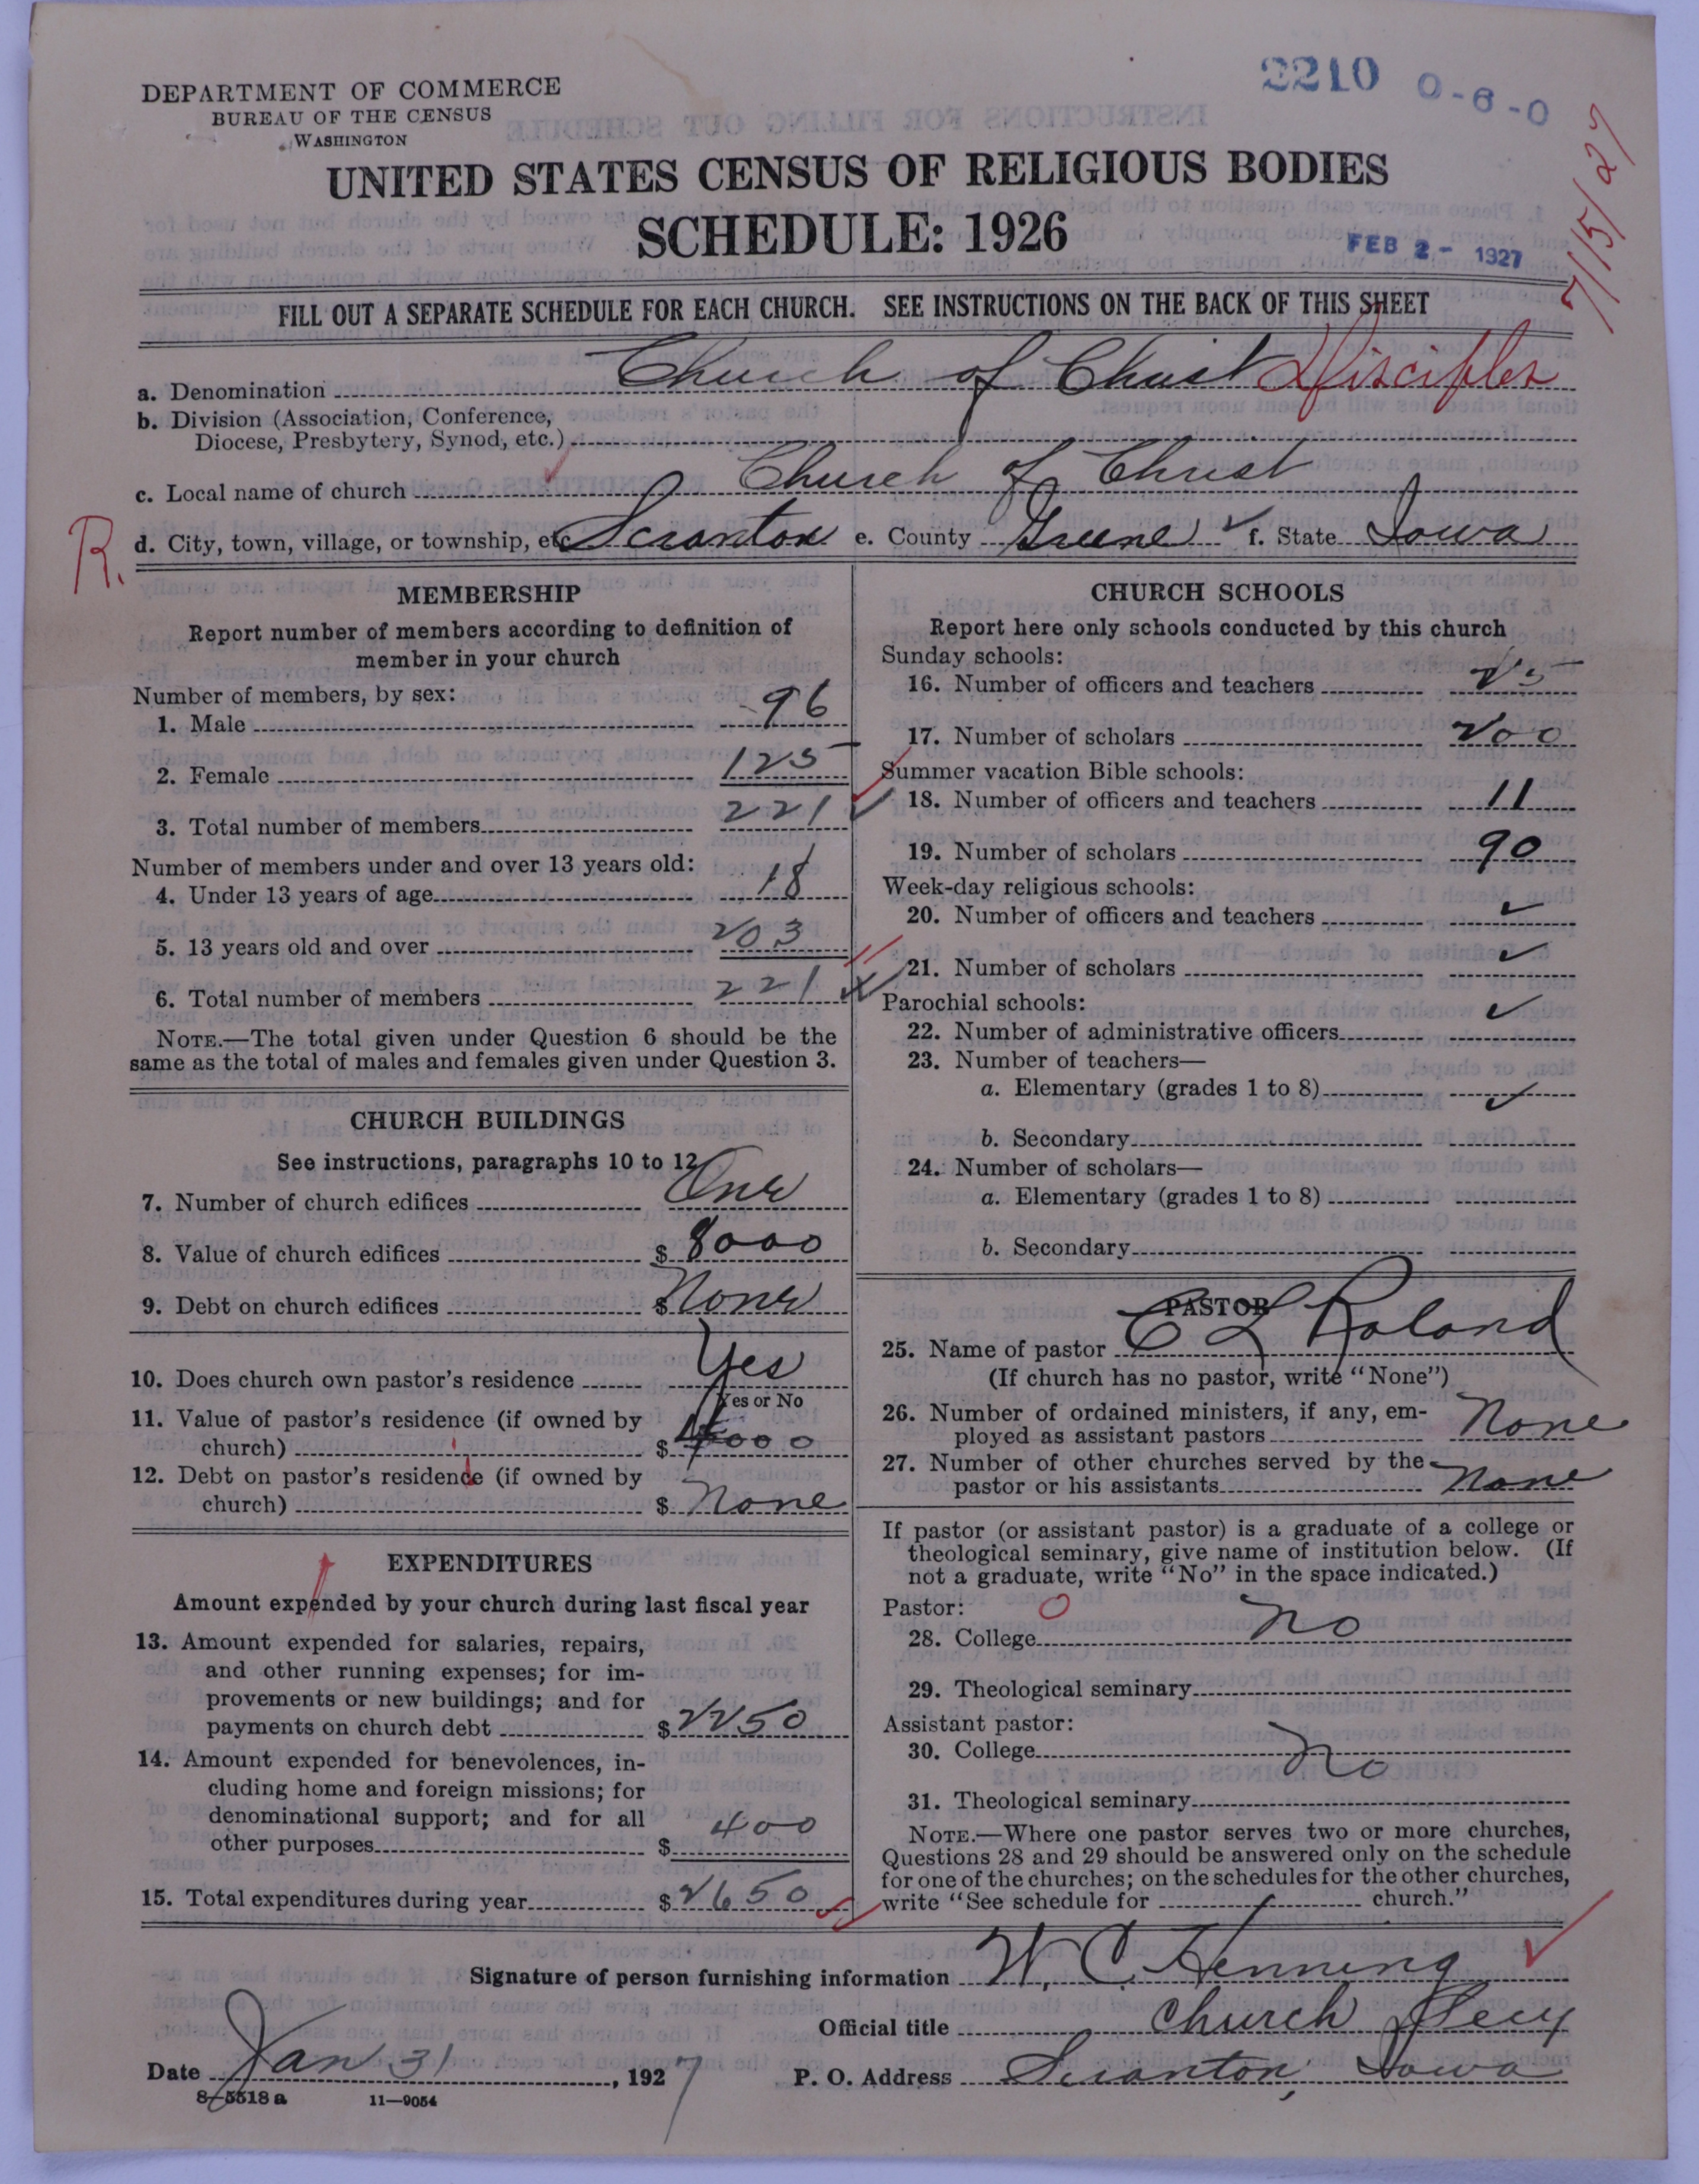 2210 0-6-0
DEPARTMENT OF COMMERCE
BUREAU OF THE CENSUS
WASHINGTON
7/15/27
UNITED STATES CENSUS OF RELIGIOUS BODIES
SCHEDULE: 1926
FEB 2 - 1927
FILL OUT A SEPARATE SCHEDULE FOR EACH CHURCH. SEE INSTRUCTIONS ON THE BACK OF THIS SHEET
a. Denomination Church of Christ Disciples
b. Division (Association, Conference,
Diocese, Presbytery, Synod, etc.)
c. Local name of church Church of Christ
R. d. City, town, village, or township, etc. Scranton e. County Greene ✓ f. State Iowa
MEMBERSHIP
Report number of members according to definition of
member in your church
Number of members, by sex:
1. Male 96
2. Female 125
3. Total number of members 221 ✓
Number of members under and over 13 years old:
4. Under 13 years of age 18
5. 13 years old and over 203
6. Total number of members 221
NOTE.—The total given under Question 6 should be the
same as the total of males and females given under Question 3.
CHURCH BUILDINGS
See instructions, paragraphs 10 to 12
7. Number of church edifices One
8. Value of church edifices $ 8000
9. Debt on church edifices $ None
10. Does church own pastor's residence Yes
Yes or No
11. Value of pastor's residence (if owned by
church) $ 4000
12. Debt on pastor's residence (if owned by
church) $ None
EXPENDITURES
Amount expended by your church during last fiscal year
13. Amount expended for salaries, repairs,
and other running expenses; for im-
provements or new buildings; and for
payments on church debt $ 2250
14. Amount expended for benevolences, in-
cluding home and foreign missions; for
denominational support; and for all
other purposes $ 400
15. Total expenditures during year $ 2650
CHURCH SCHOOLS
Report here only schools conducted by this church
Sunday schools:
16. Number of officers and teachers 25
17. Number of scholars 200
Summer vacation Bible schools:
18. Number of officers and teachers 11
19. Number of scholars 90
Week-day religious schools:
20. Number of officers and teachers ✓
21. Number of scholars ✓
Parochial schools:
22. Number of administrative officers ✓
23. Number of teachers—
a. Elementary (grades 1 to 8) ✓
b. Secondary
24. Number of scholars—
a. Elementary (grades 1 to 8)
b. Secondary
PASTOR
25. Name of pastor C L Roland
(If church has no pastor, write "None")
26. Number of ordained ministers, if any, em-
ployed as assistant pastors None
27. Number of other churches served by the
pastor or his assistants None
If pastor (or assistant pastor) is a graduate of a college or
theological seminary, give name of institution below. (If
not a graduate, write "No" in the space indicated.)
Pastor: 0
28. College No
29. Theological seminary
Assistant pastor:
30. College No
31. Theological seminary
NOTE.—Where one pastor serves two or more churches,
Questions 28 and 29 should be answered only on the schedule
for one of the churches; on the schedules for the other churches,
write "See schedule for church."
Signature of person furnishing information W. C. Henning
Official title Church Secy
Date Jan 31, 1927 P. O. Address Scranton, Iowa
8-5518 a 11—9054